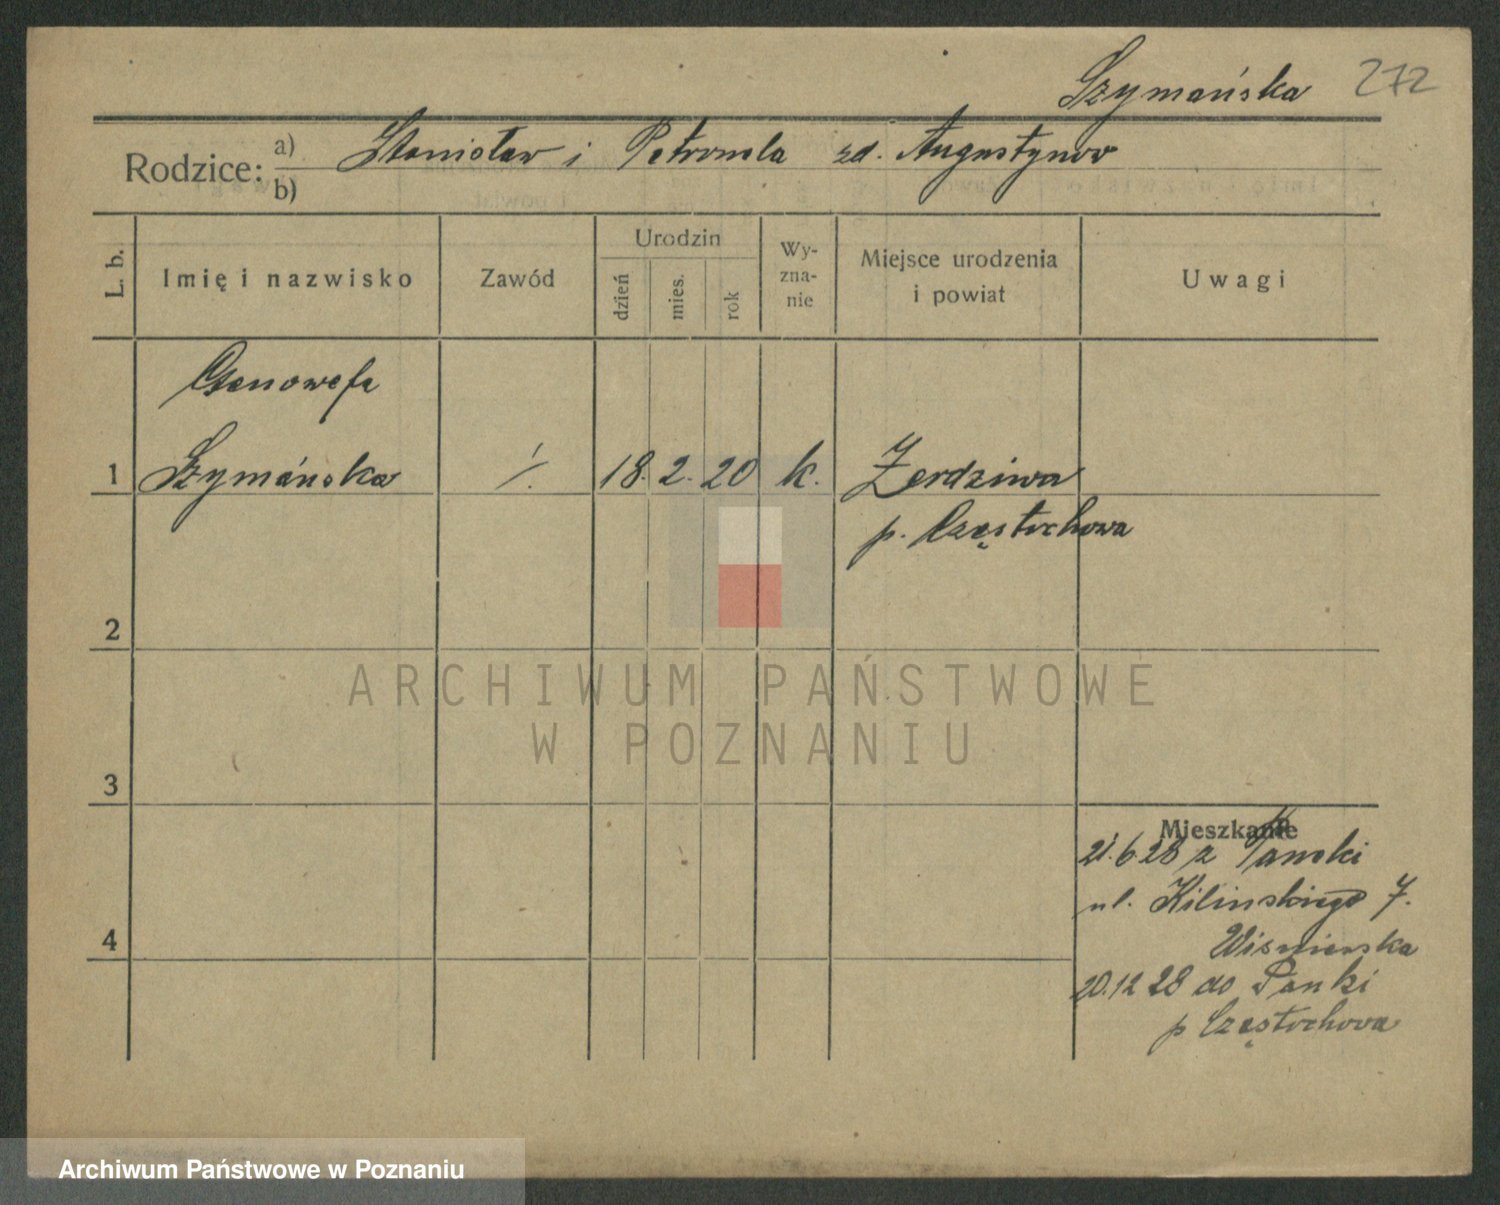 Szymańska 272
Rodzice: a) Stanisław i Petronela zd. Augustynow
b)
L. b. Imię i nazwisko Zawód Urodzin dzień mies. rok Wy-zna-nie Miejsce urodzenia i powiat Uwagi
Genowefa
1 Szymańska ./. 18. 2. 20 k. Zerdziwa
p. Częstochowa
2
ARCHIWUM PAŃSTWOWE
W POZNANIU
3
Mieszkanie
21.6.28 z Panki
ul. Kilinskiego 7.
Wisnierska
4
20.12 28 do Panki
p Częstochowa
Archiwum Państwowe w Poznaniu